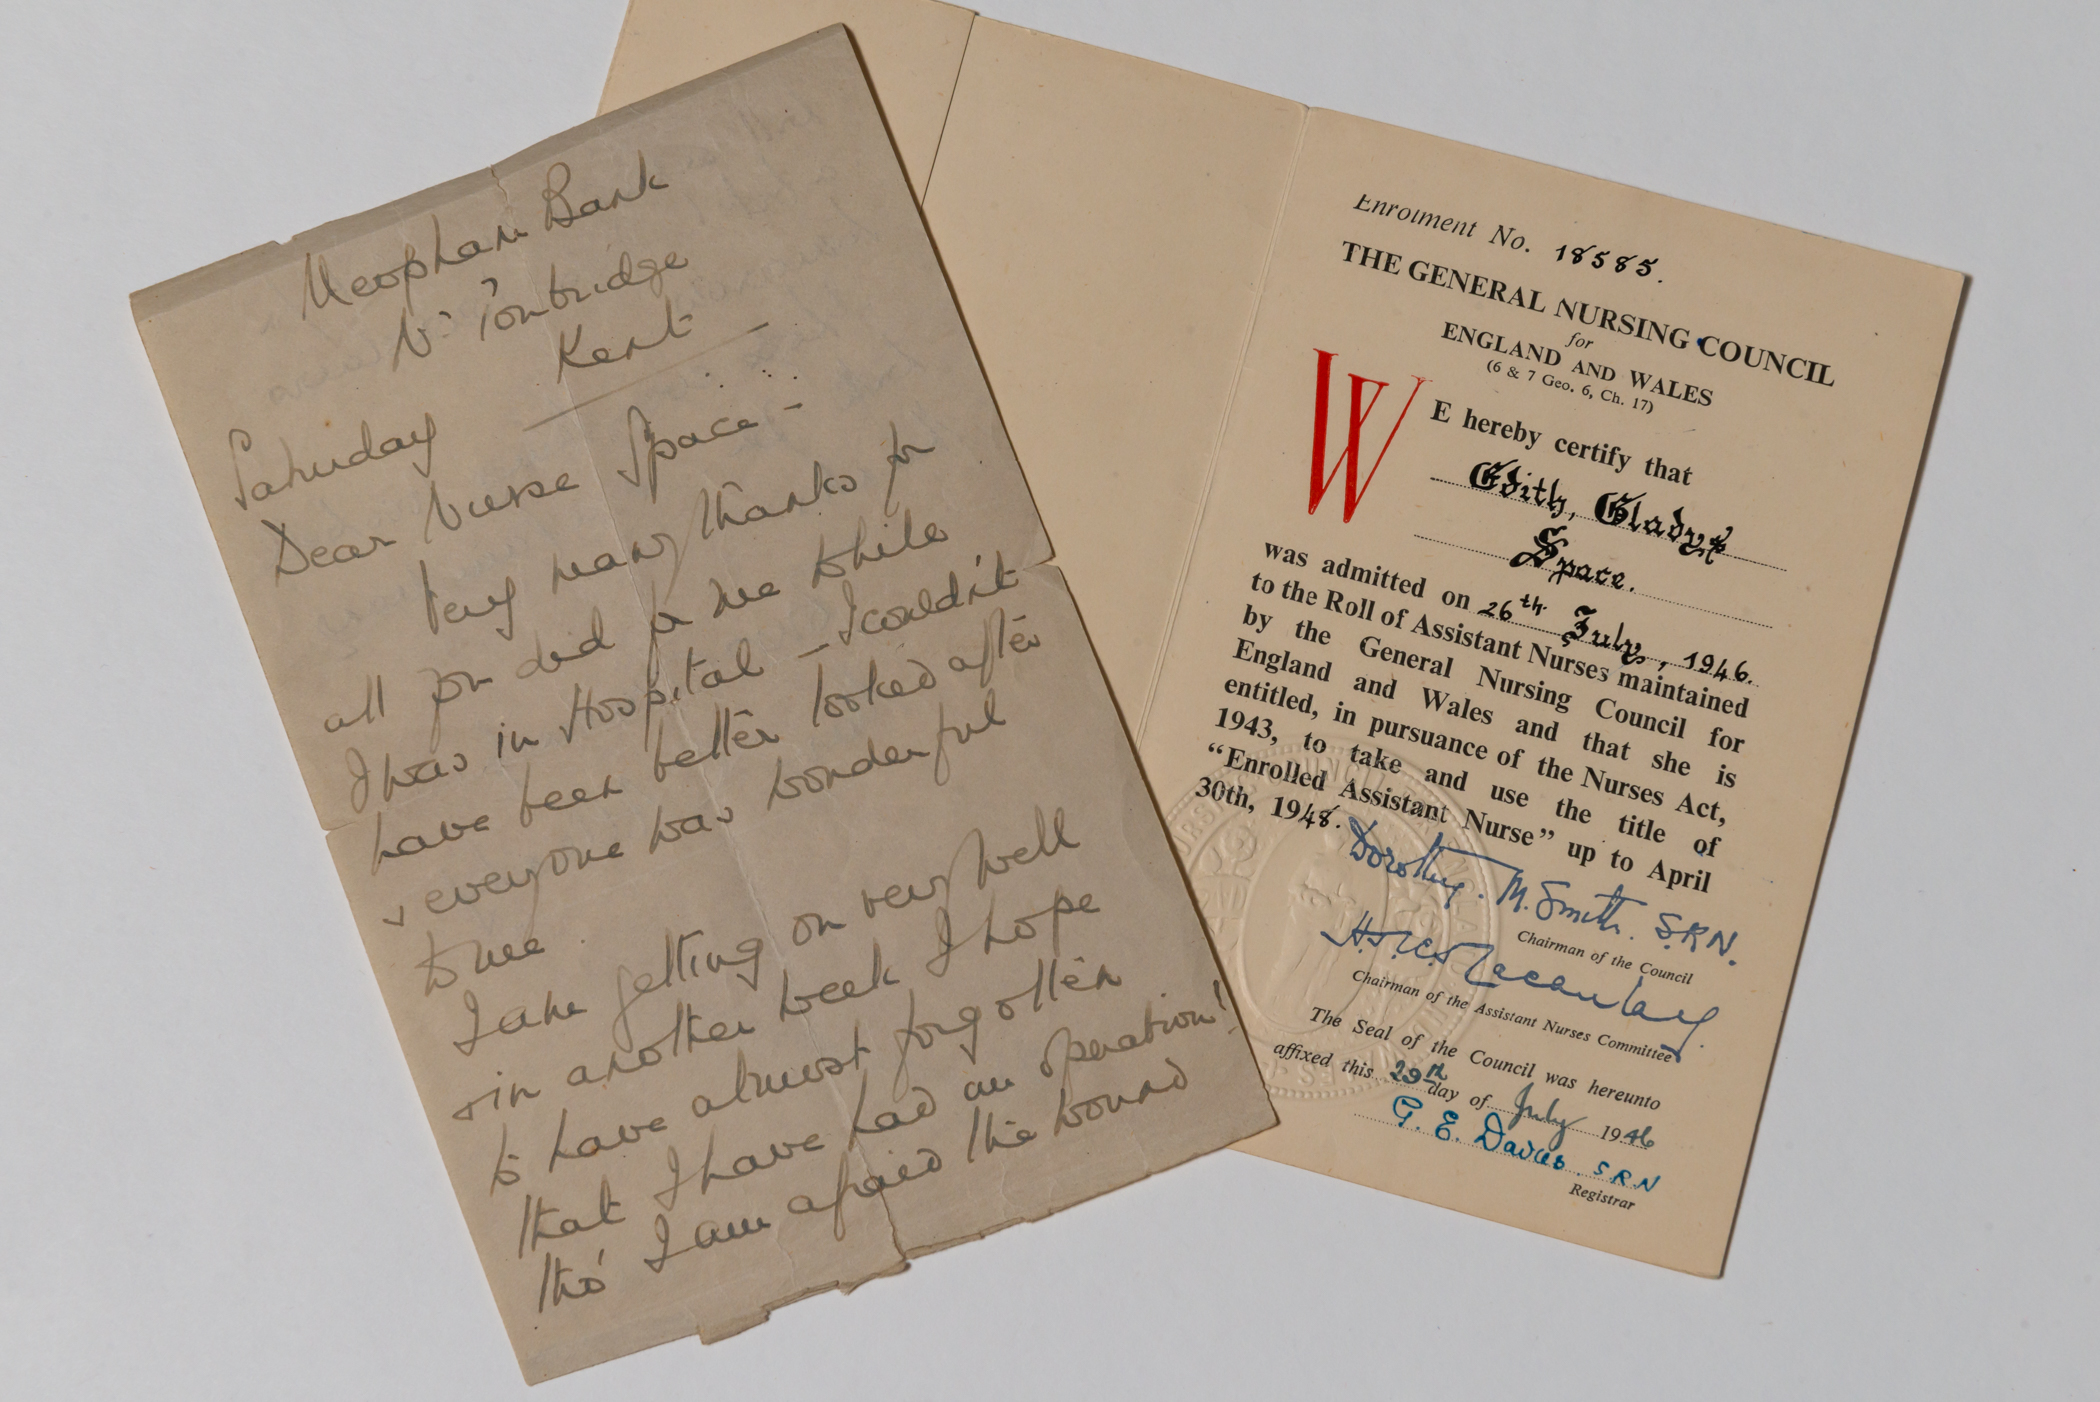 Meopham Bank
Nr Tonbridge
Kent
Saturday
Dear Nurse Space -
Very many thanks for
all you did for me while
I was in Hospital - I couldn't
have been better looked after
& everyone was wonderful
to me
I am getting on very well
& in another week I hope
to have almost forgotten
that I have had an operation!
tho' I am afraid the wound
Enrolment No. 18585.
THE GENERAL NURSING COUNCIL
for
ENGLAND AND WALES
(6 & 7 Geo. 6, Ch. 17)
WE hereby certify that
Edith, Gladys
Space.
was admitted on 26th July, 1946.
to the Roll of Assistant Nurses maintained
by the General Nursing Council for
England and Wales and that she is
entitled, in pursuance of the Nurses Act,
1943, to take and use the title of
"Enrolled Assistant Nurse" up to April
30th, 1948.
Dorothy. M. Smith. S.R.N.
Chairman of the Council
Macaulay
Chairman of the Assistant Nurses Committee
The Seal of the Council was hereunto
affixed this 29th day of July 1946
G. E. Davies. S R N
Registrar